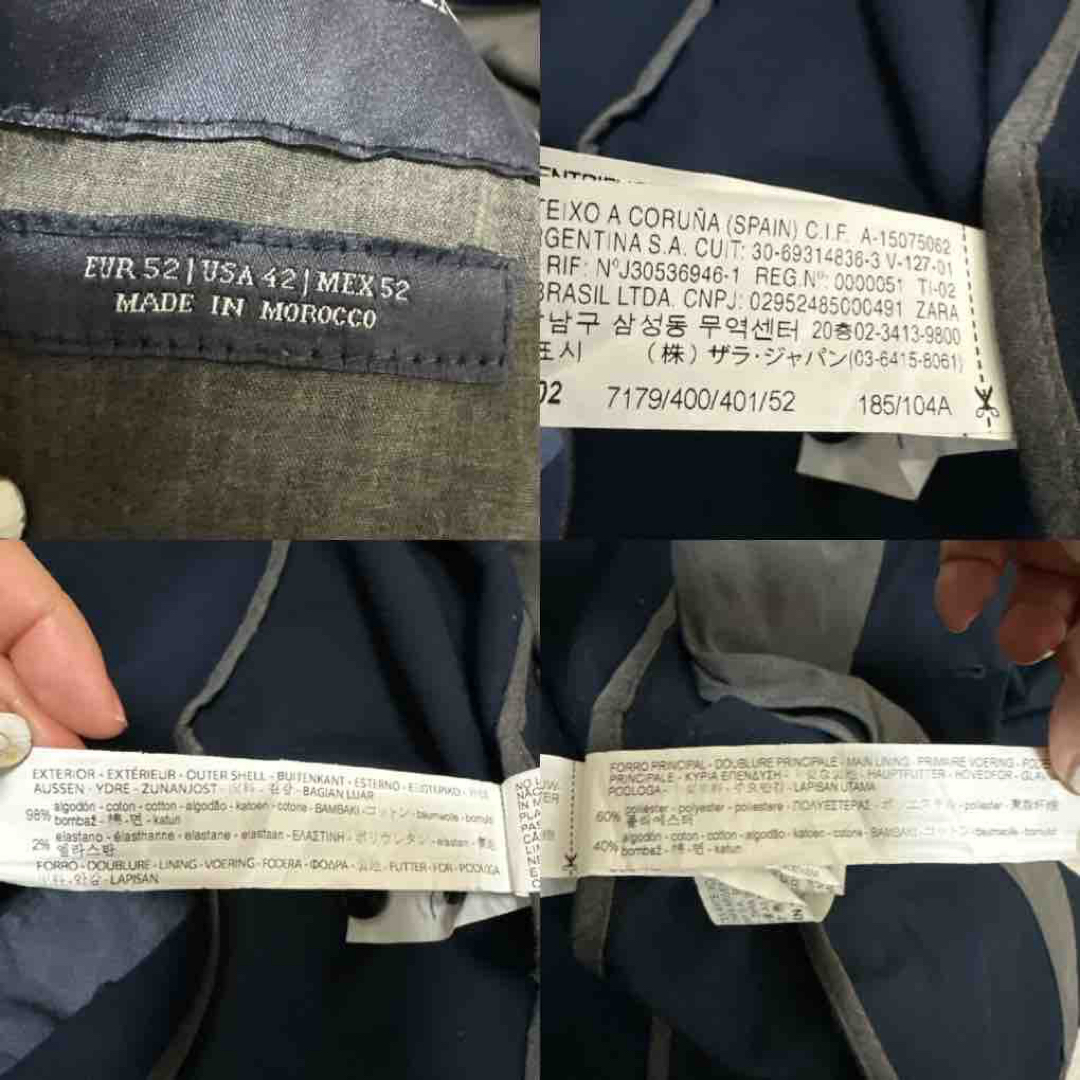 EUR 52 | USA 42 | MEX 52
MADE IN MOROCCO
TEIXO A CORUÑA (SPAIN) C.I.F. A-15075062
RGENTINA S.A. CUIT: 30-69314836-3 V-127-01
RIF: NºJ30536946-1 REG.Nº: 0000051 TI-02
BRASIL LTDA. CNPJ: 02952485000491 ZARA
남구 삼성동 무역센터 20층02-3413-9800
표시 (株) ザラ・ジャパン(03-6415-8061)
02 7179/400/401/52 185/104A
EXTERIOR - EXTÉRIEUR - OUTER SHELL - BUITENKANT - ESTERNO -
AUSSEN - YDRE - ZUNANJOST - 겉감 - BAGIAN LUAR
algodón - coton - cotton - algodão - katoen - cotone - ΒΑΜΒΑΚΙ - コットン - baumwolle - bomuld
98% bombaž - 棉 - 면 - katun
elastano - élasthanne - elastane - elastaan - ΕΛΑΣΤΙΝΗ - ポリウレタン - elastan -
2% 엘라스판
FORRO - DOUBLURE - LINING - VOERING - FODERA - ΦΟΔΡΑ - FUTTER - FOR - PODLOGA
안감 - LAPISAN
FORRO PRINCIPAL - DOUBLURE PRINCIPALE - MAIN LINING - PRIMAIRE VOERING -
PRINCIPALE - ΚΥΡΙΑ ΕΠΕΝΔΥΣΗ - HAUPTFUTTER - HOVEDFOR - GLAV
PODLOGA - LAPISAN UTAMA
poliéster - polyester - poliestere - ΠΟΛΥΕΣΤΕΡΑΣ - ポリエステル - poliester -
60% 폴리에스터
algodón - coton - cotton - algodão - katoen - cotone - ΒΑΜΒΑΚΙ - コットン - baumwolle - bomuld
40% bombaž - 棉 - 면 - katun